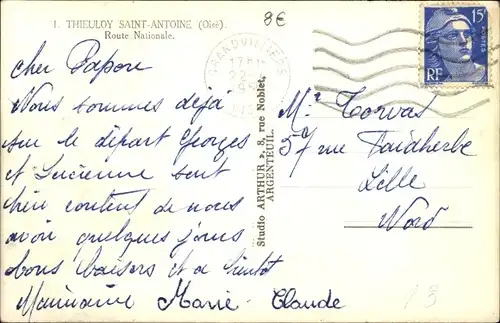 1. THIEULOY SAINT-ANTOINE (Oise).
Route Nationale.
8€
GRANDVILLIERS
15F
RF
POSTES
Cher Papou
Nous sommes déjà
sur le départ Georges
et Lucienne sont
bien content de nous
avoir quelques jours
bons baisers et a bientôt
Mamaine Marie-Claude
Studio ARTHUR, 8, rue Noblet,
ARGENTEUIL.
Mr Torvas
57 rue Faidherbe
Lille
Nord
13